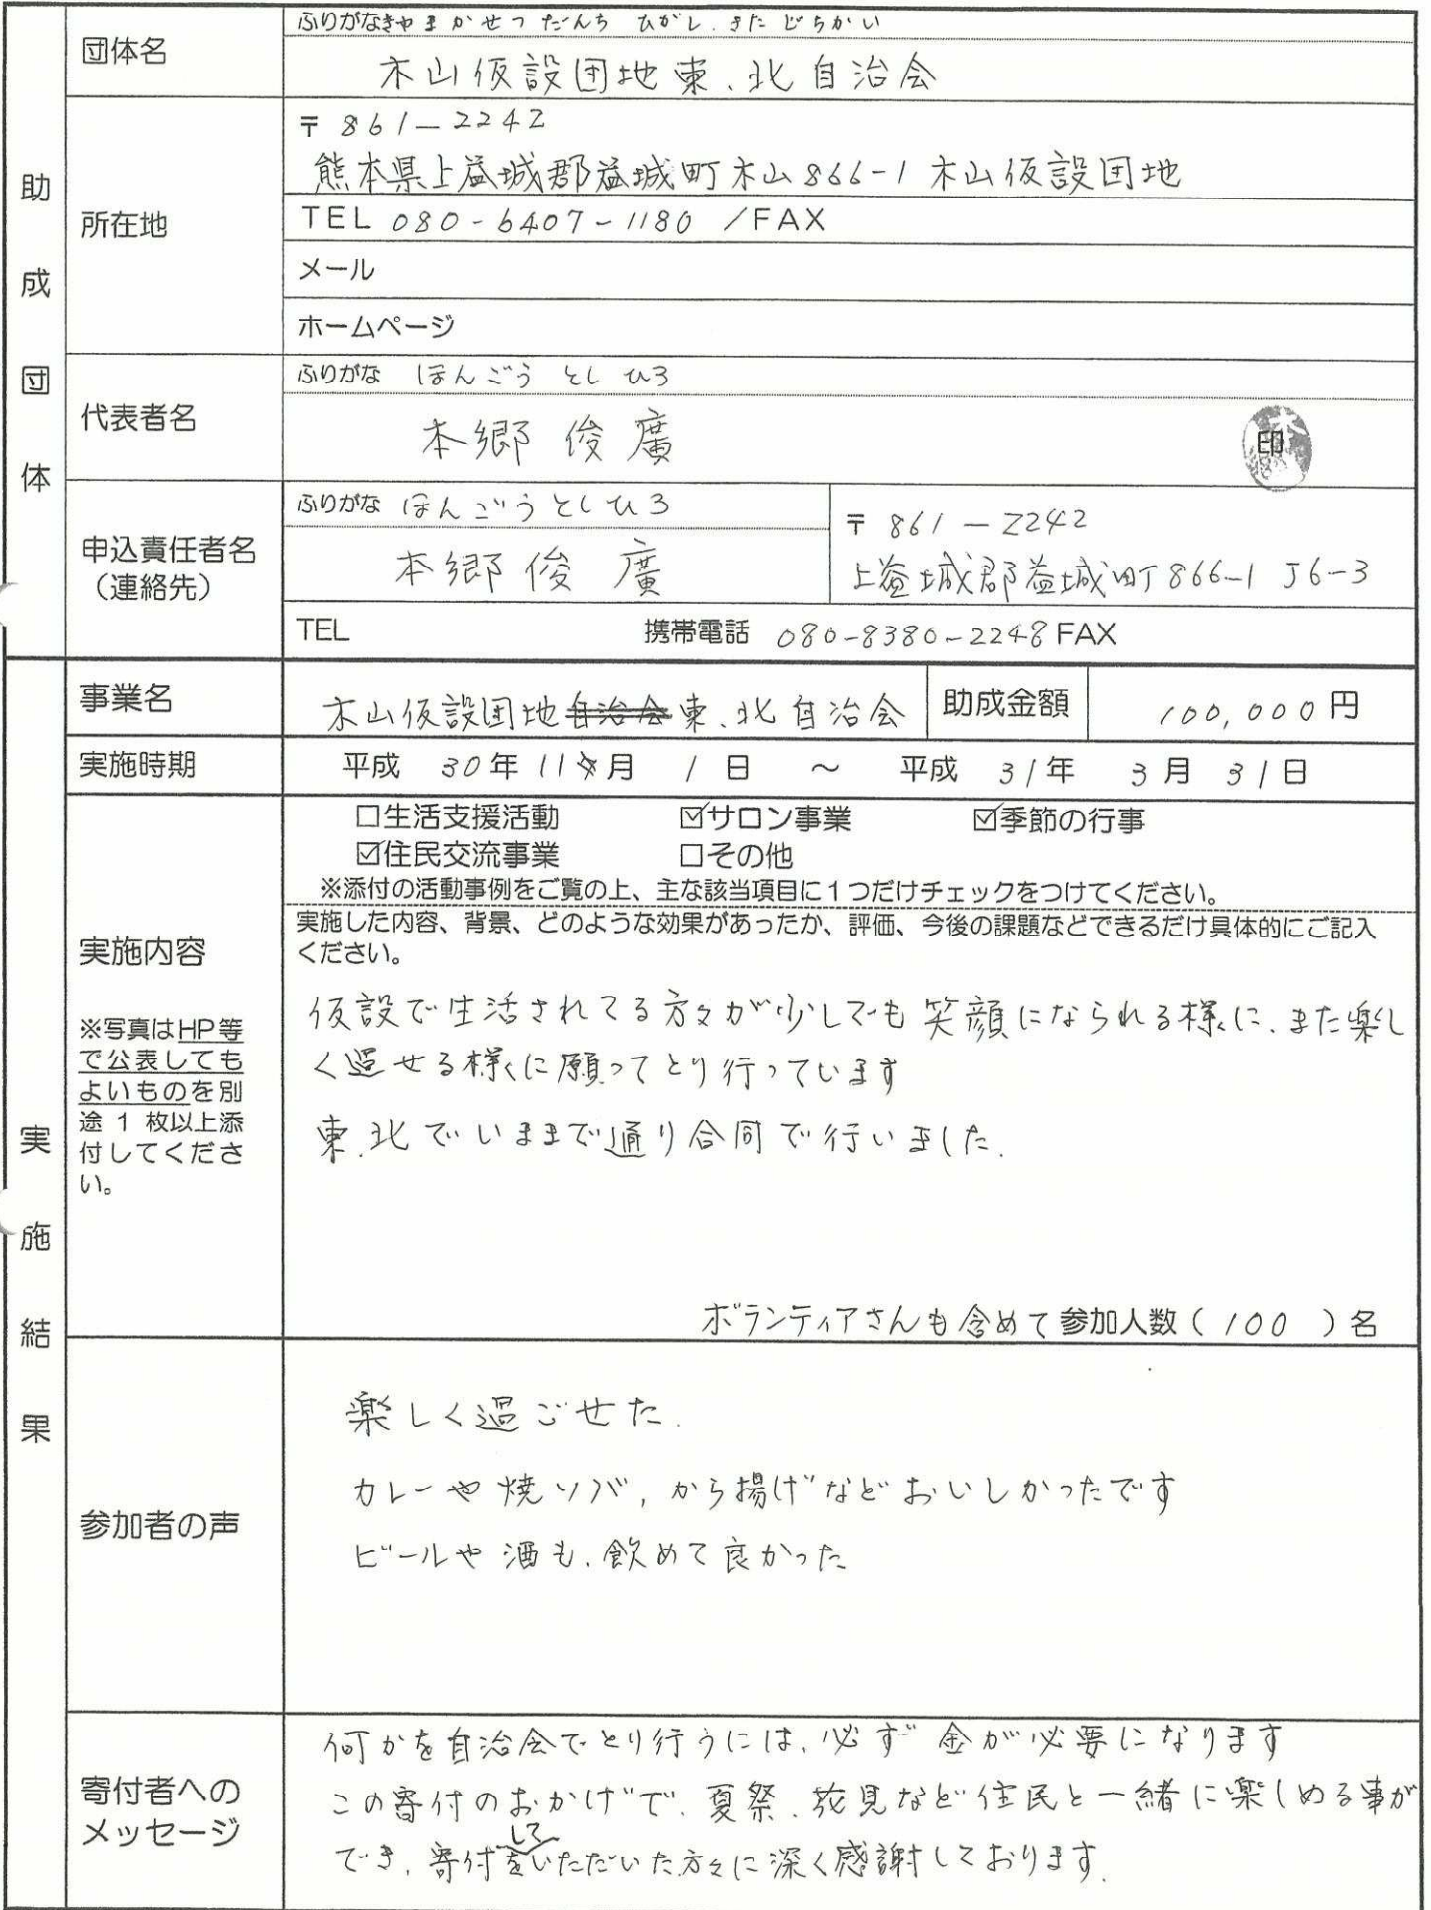 助成団体
団体名
ふりがな きやまかせつ だんち ひがし、きた じちかい
木山仮設団地東、北自治会
所在地
〒 861-2242
熊本県上益城郡益城町木山866-1 木山仮設団地
TEL 080-6407-1180 /FAX
メール
ホームページ
代表者名
ふりがな ほんごう としひろ
本郷 俊廣
印
申込責任者名
(連絡先)
ふりがな ほんごうとしひろ
本郷 俊廣
〒 861-2242
上益城郡益城町866-1 J6-3
TEL 携帯電話 080-8380-2248 FAX
実施結果
事業名
木山仮設団地自治会東、北自治会
助成金額
100,000円
実施時期
平成 30年 11月 1日 ~ 平成 31年 3月 31日
実施内容
※写真はHP等
で公表しても
よいものを別
途 1 枚以上添
付してくださ
い。
□生活支援活動 ☑サロン事業 ☑季節の行事
☑住民交流事業 □その他
※添付の活動事例をご覧の上、主な該当項目に1つだけチェックをつけてください。
実施した内容、背景、どのような効果があったか、評価、今後の課題などできるだけ具体的にご記入
ください。
仮設で生活されてる方々が少しでも笑顔になられる様に、また楽し
く過せる様に願ってとり行っています
東、北でいままで通り合同で行いました。
ボランティアさんも含めて 参加人数(100)名
参加者の声
楽しく過ごせた。
カレーや焼ソバ、から揚げなどおいしかったです
ビールや酒も、飲めて良かった
寄付者への
メッセージ
何かを自治会でとり行うには、必ず金が必要になります
この寄付のおかげで、夏祭、花見など住民と一緒に楽しめる事が
でき、寄付をしていただいた方々に深く感謝しております。